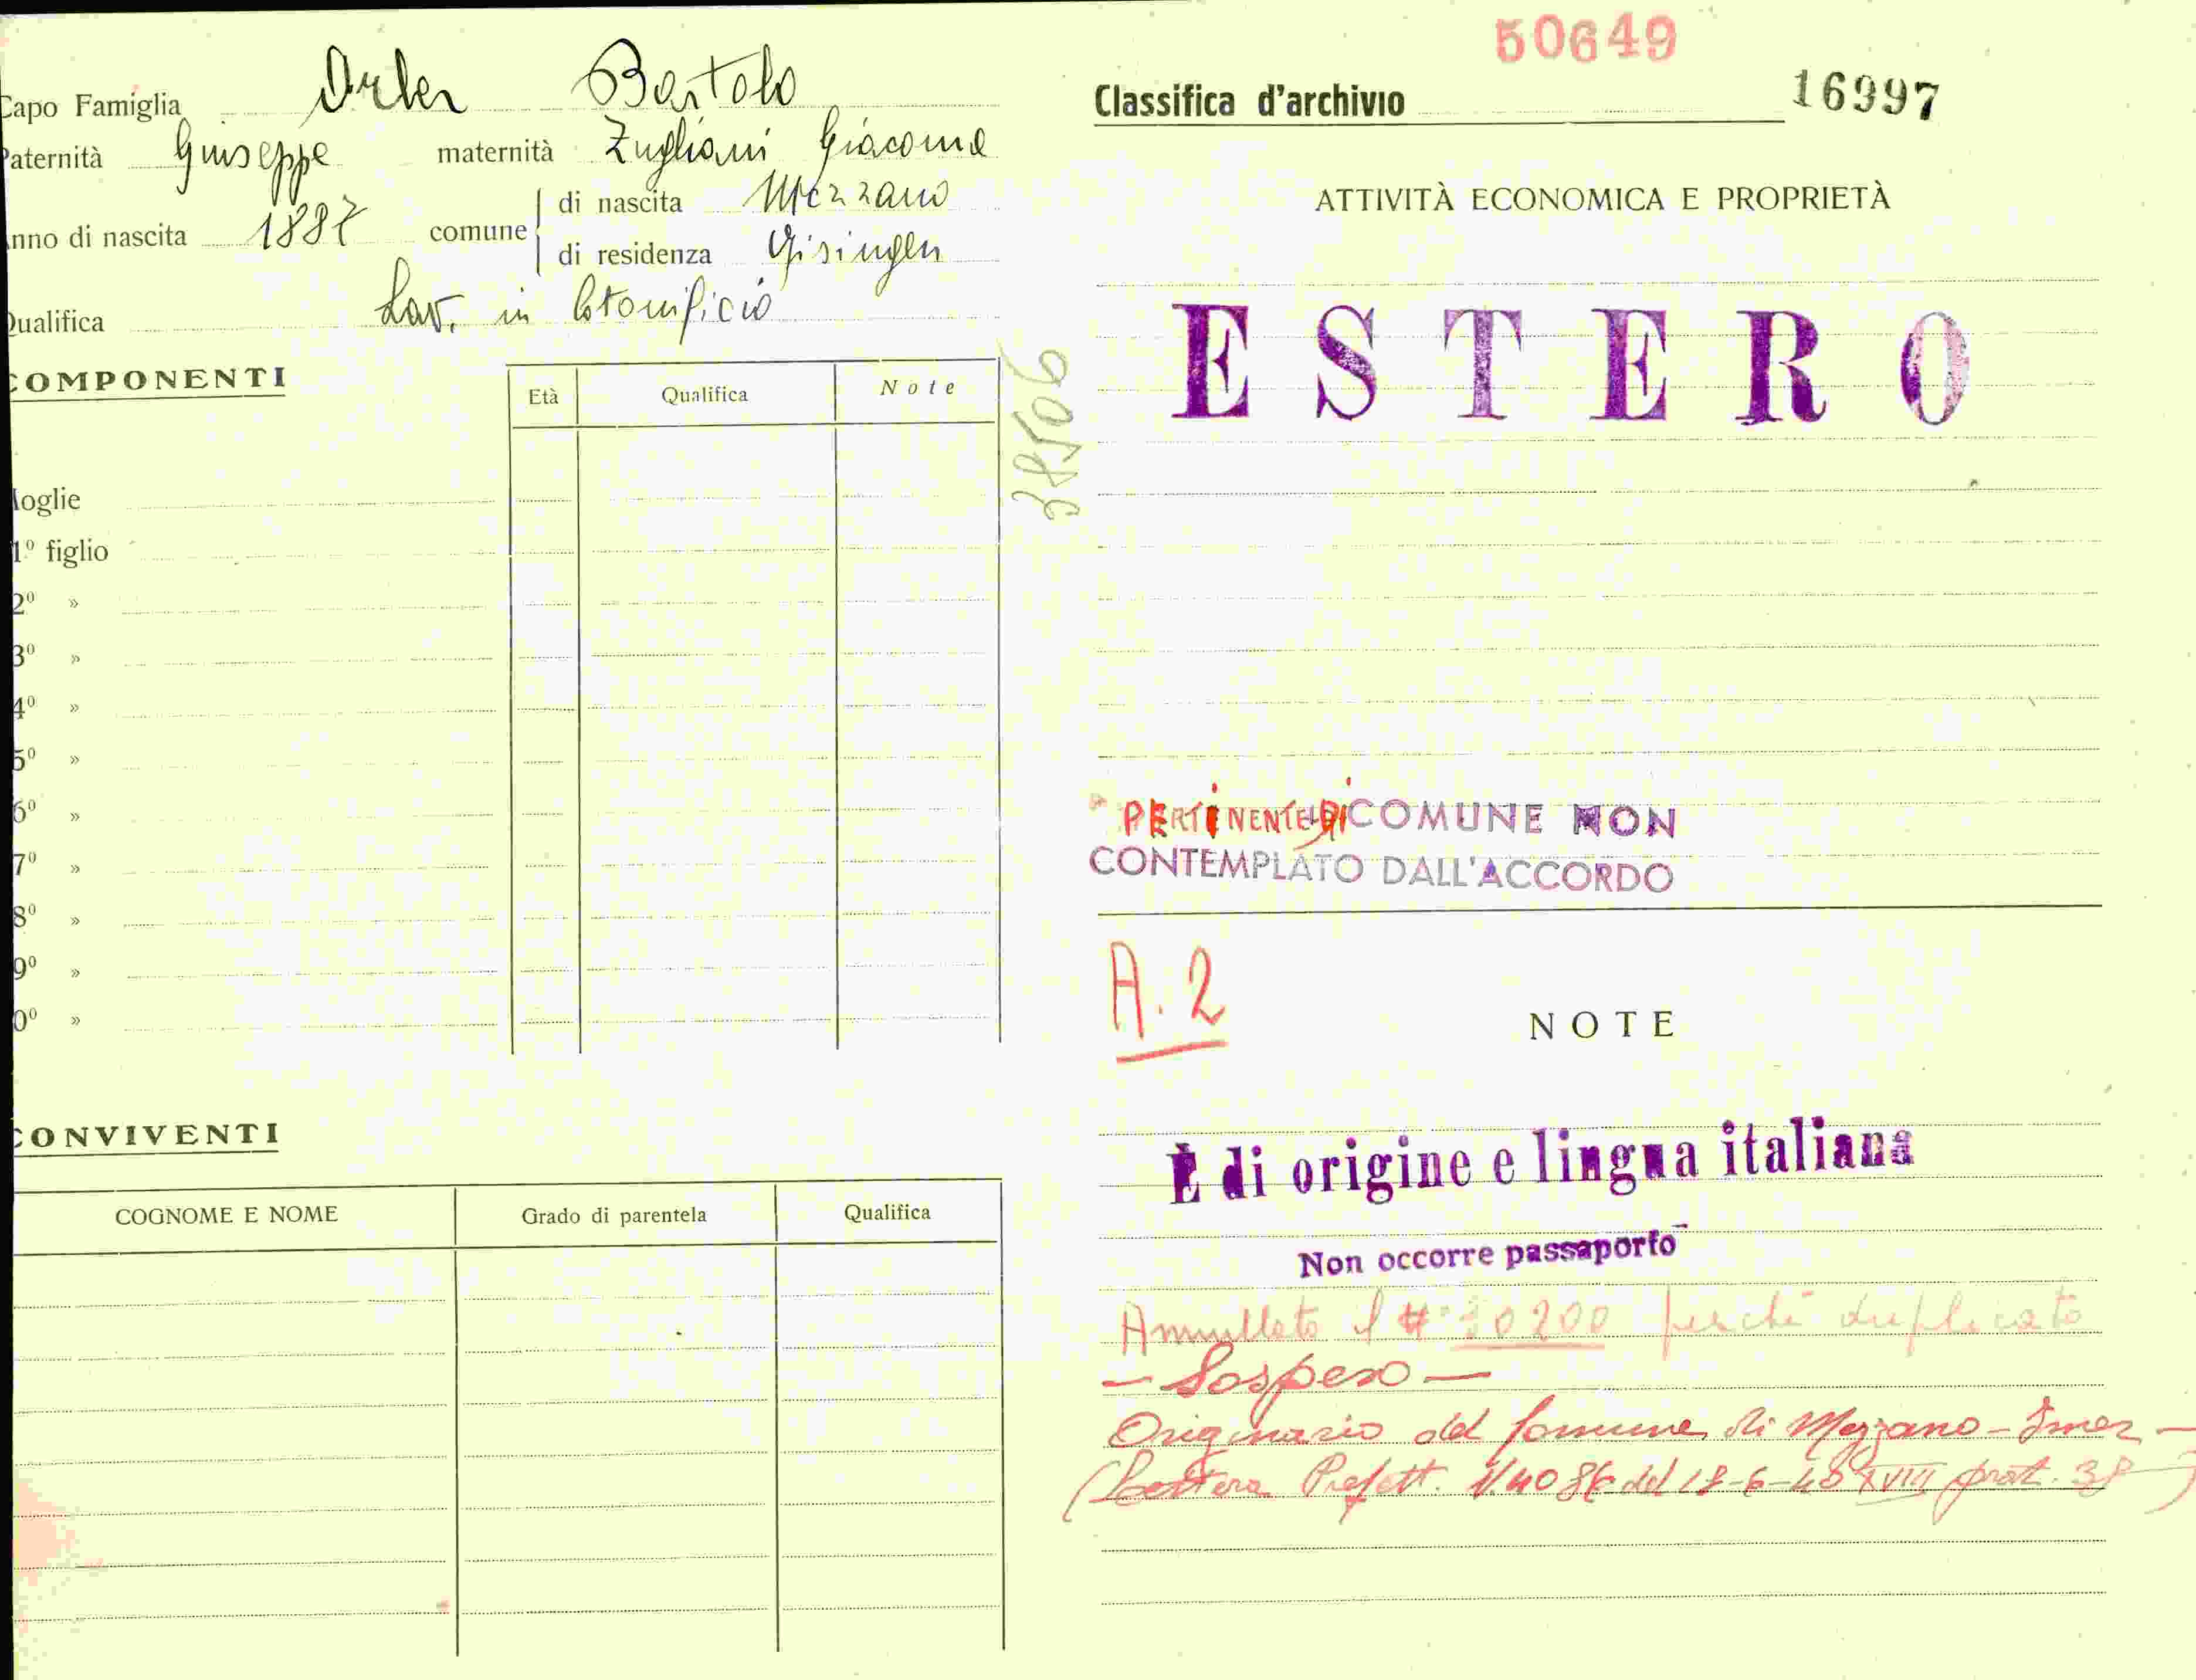 50649
Classifica d'archivio 16997
apo Famiglia Orler Bortolo
aternità Giuseppe maternità Zugliani Giacoma
nno di nascita 1887 comune di nascita Mezzano
di residenza Gisingen
ualifica Lav. in Cotonificio
OMPONENTI
Età Qualifica Note
38506
oglie
1º figlio
2º »
3º »
4º »
5º »
6º »
7º »
8º »
9º »
0º »
ONVIVENTI
COGNOME E NOME Grado di parentela Qualifica
ATTIVITÀ ECONOMICA E PROPRIETÀ
ESTERO
PERTINENTE DI COMUNE NON
CONTEMPLATO DALL'ACCORDO
A.2
NOTE
È di origine e lingua italiana
Non occorre passaporto
Annullato il # 30200 perché duplicato
- Sospeso -
Originario del Comune di Mezzano - Imer -
(Lettera Prefett. del XVIII prot. 38 )